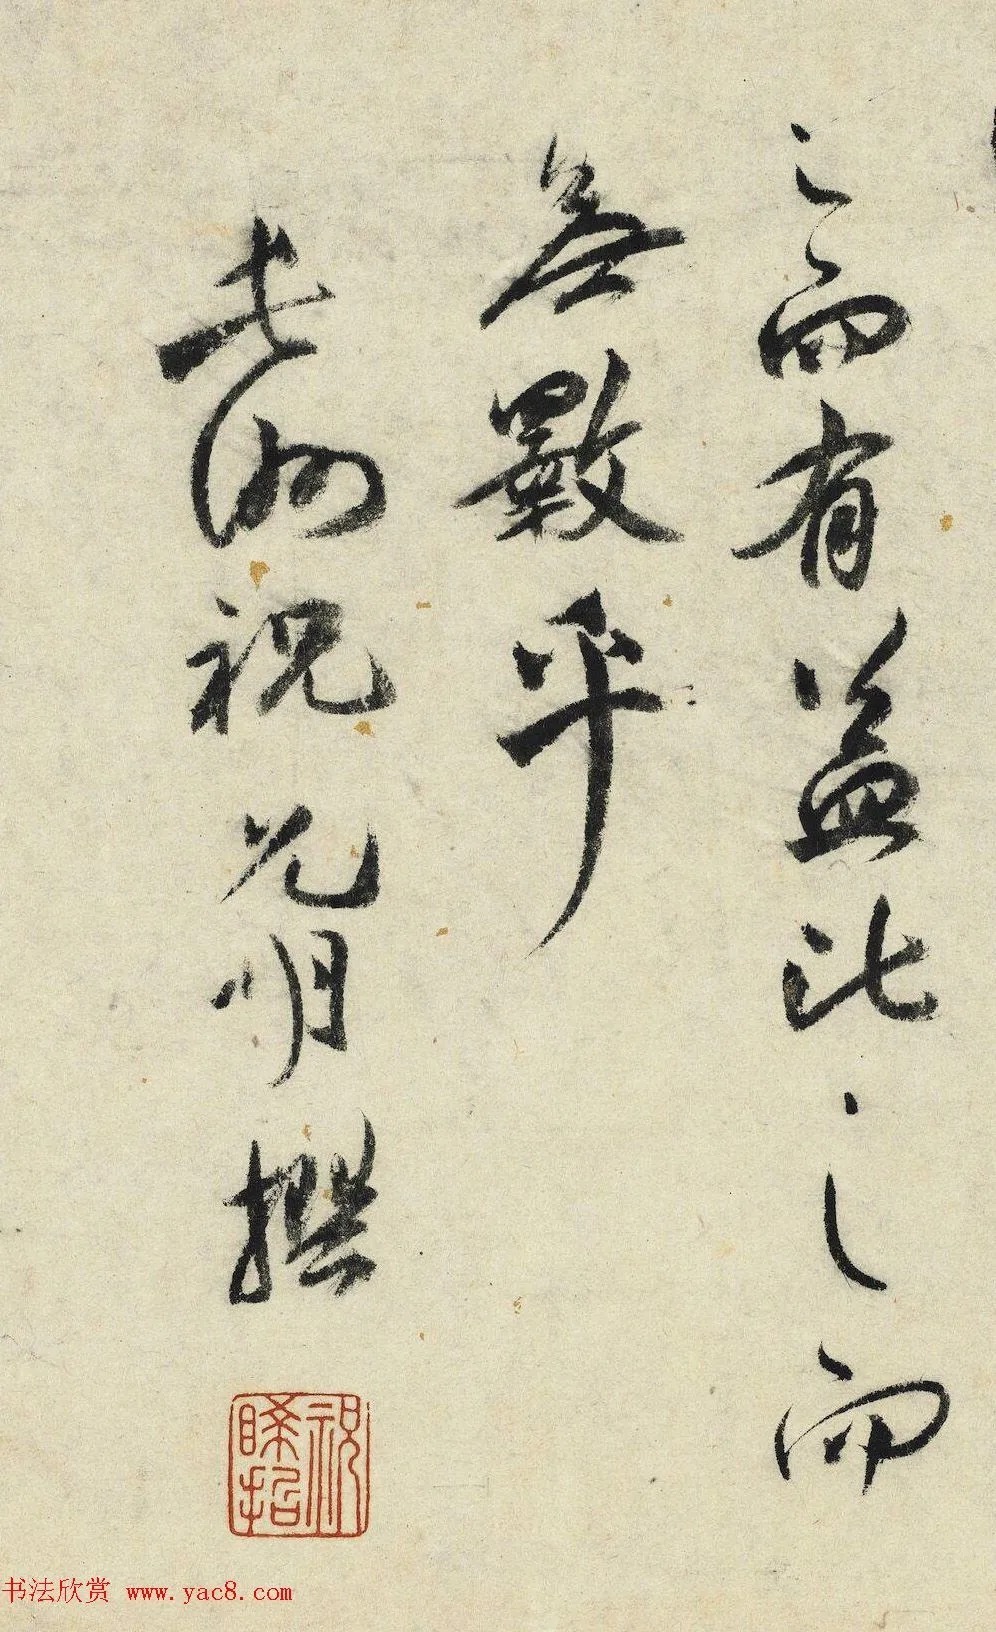 之而有益比之而
無斁乎
長洲祝允明撰
祝睎哲
书法欣赏 www.yac8.com